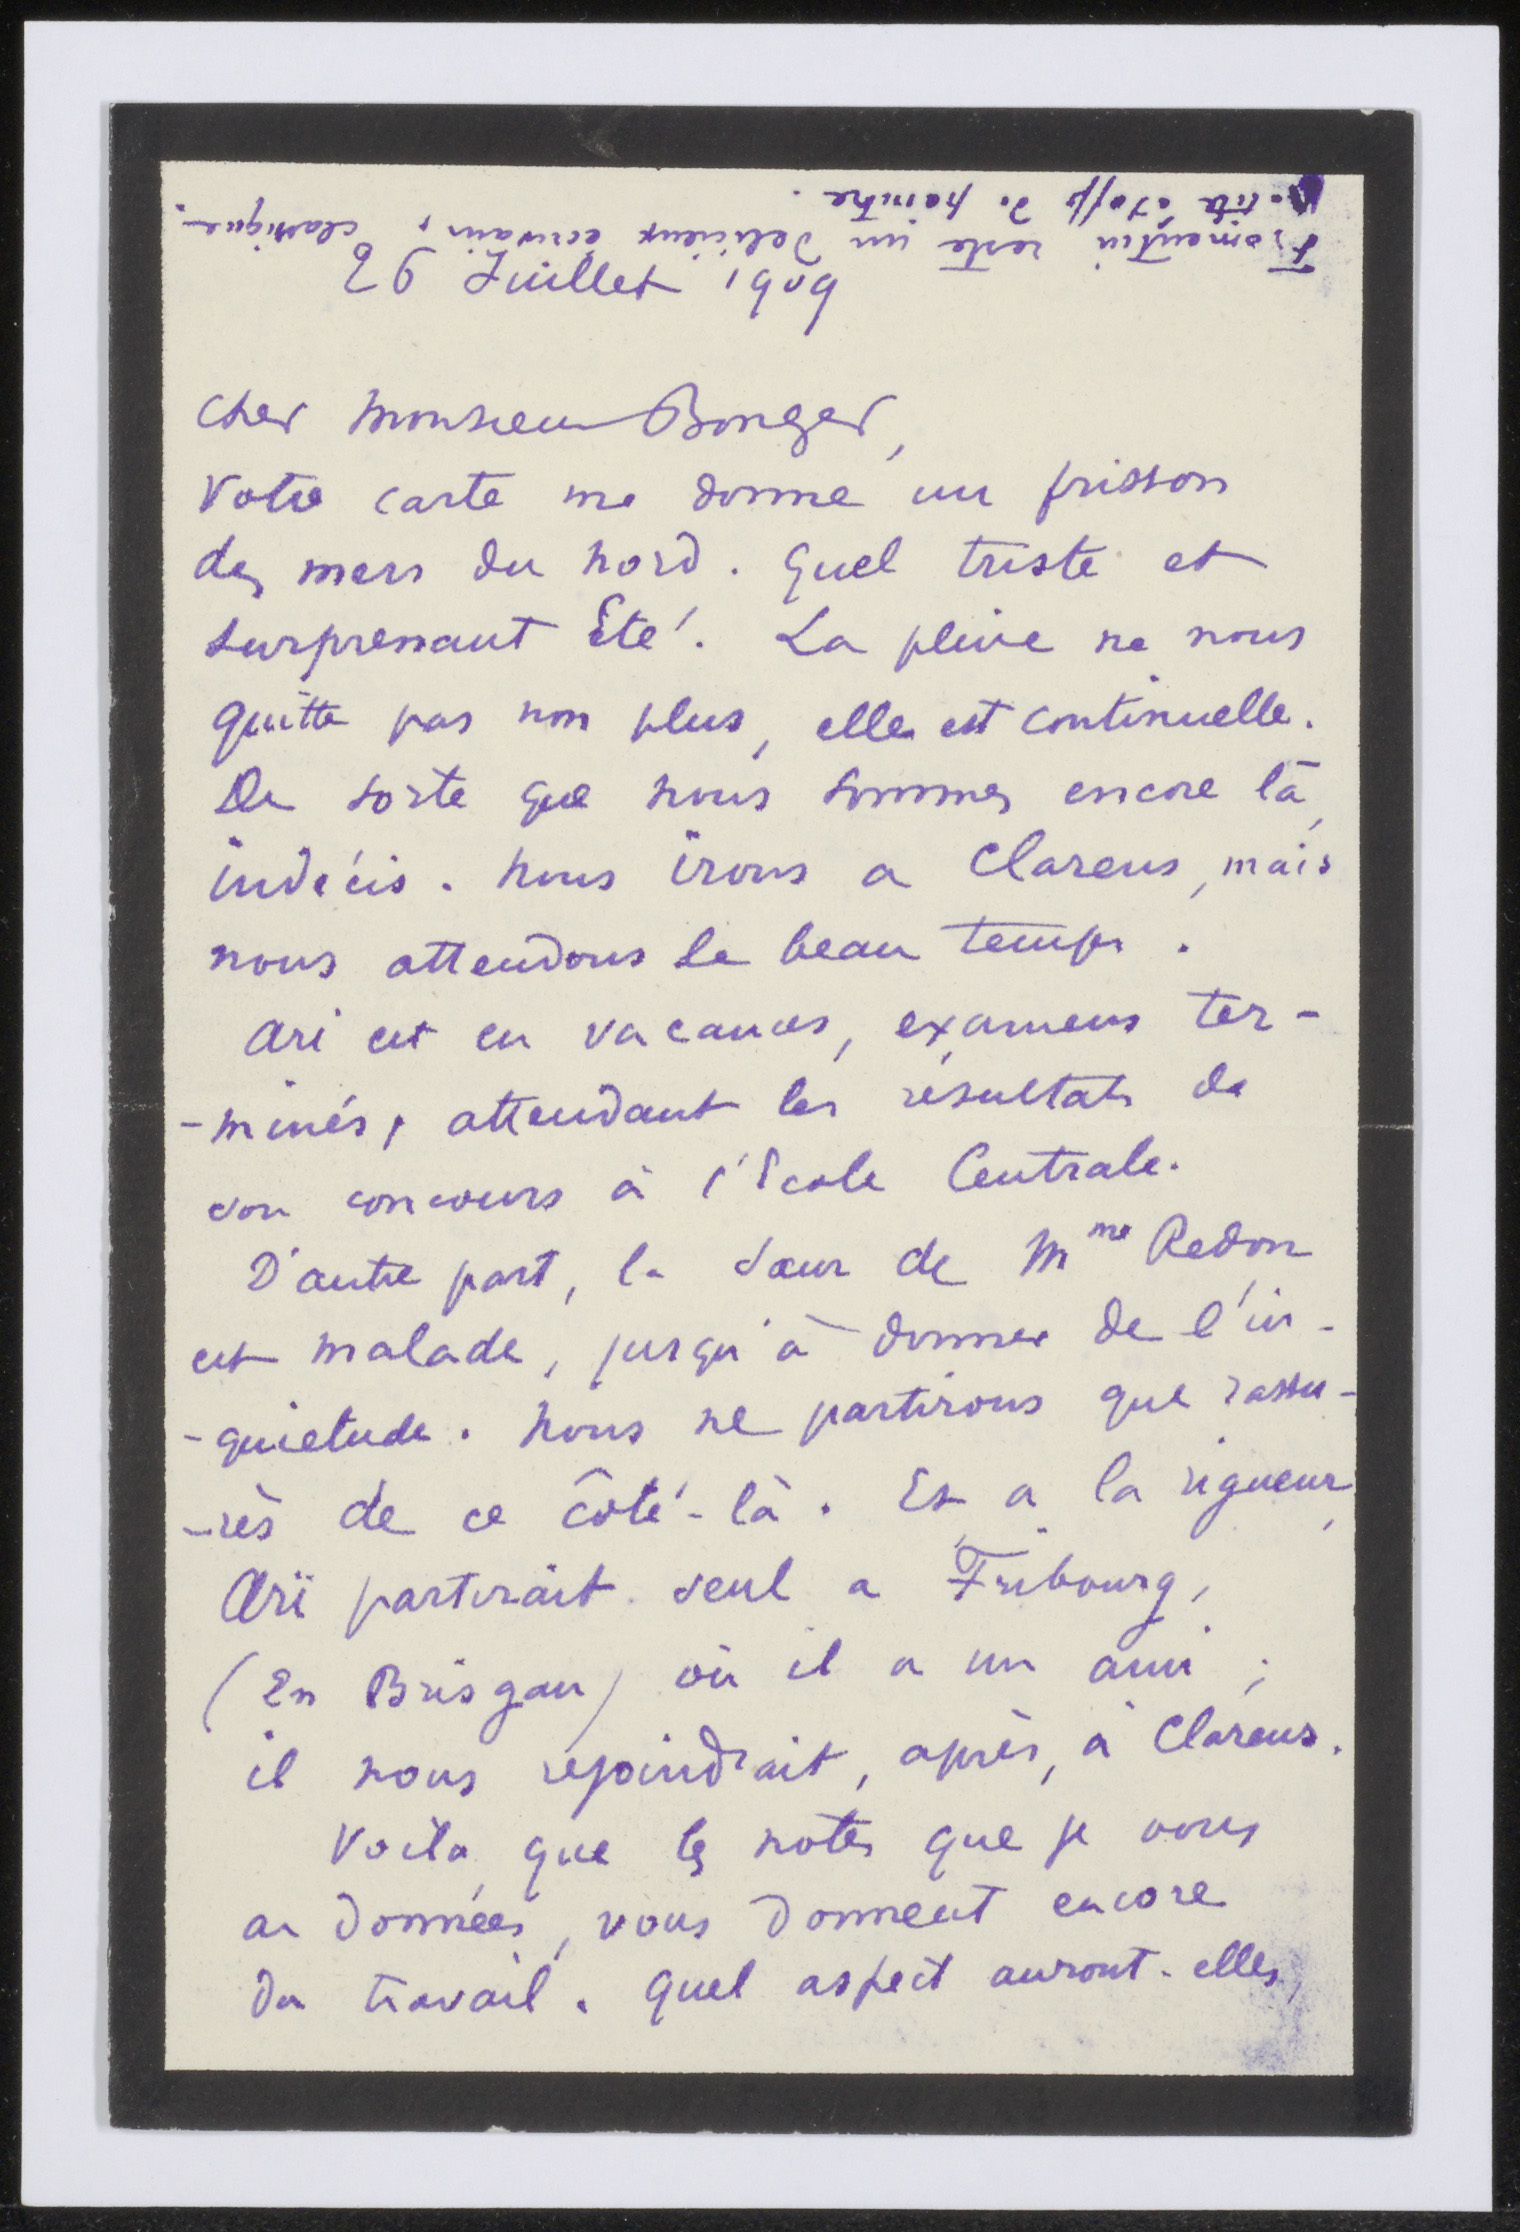 Fromentin reste un délicieux écrivain, classique.
petite étoffe de peintre.
26 Juillet 1909
Cher Monsieur Bonger,
Votre carte me donne un frisson
des mers du nord. Quel triste et
surprenant Eté. La pluie ne nous
quitte pas non plus, elle est continuelle.
De sorte que nous sommes encore là,
indécis. Nous irons a Clarens, mais
nous attendons le beau temps.
Ari est en vacances, examens ter-
-minés, attendant les résultats de
son concours à l'Ecole Centrale.
D'autre part, la sœur de Mme Redon
est malade, jusqu'à donner de l'in-
-quietude. Nous ne partirons que rassu-
-rés de ce côté-là. Et a la rigueur,
Arï partirait seul a Fribourg,
(En Brisgau) où il a un ami;
il nous rejoindrait, après, à Clarens.
Voila que les notes que je vous
ai données, vous donnent encore
du travail. Quel aspect auront-elles,